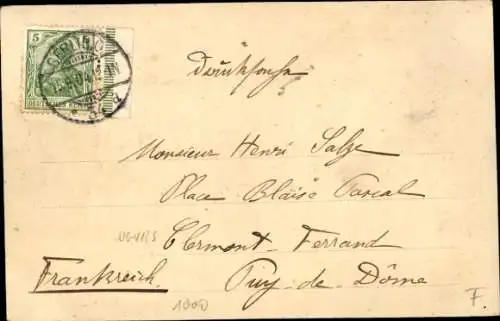 5
DEUTSCHES REICH
Drucksache
Monsieur Henri Salze
Place Blaise Pascal
Clermont-Ferrand
Frankreich. Puy-de-Dôme
1000
F.